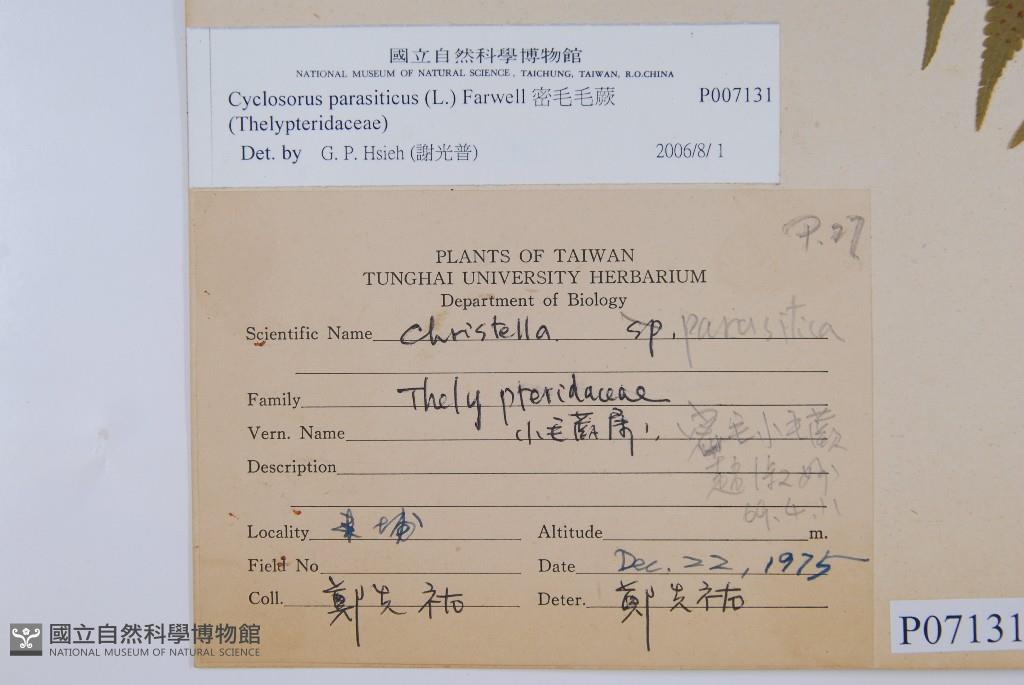 國立自然科學博物館
NATIONAL MUSEUM OF NATURAL SCIENCE, TAICHUNG, TAIWAN, R.O.CHINA
Cyclosorus parasiticus (L.) Farwell 密毛毛蕨 P007131
(Thelypteridaceae)
Det. by G. P. Hsieh (謝光普) 2006/8/ 1
P.27
PLANTS OF TAIWAN
TUNGHAI UNIVERSITY HERBARIUM
Department of Biology
Scientific Name Christella sp. parasitica
Family Thelypteridaceae
Vern. Name 小毛蕨屬 密毛小毛蕨
Description
69.4.11
Locality 東埔 Altitude m.
Field No Date Dec. 22, 1975
Coll. 鄭先祐 Deter. 鄭先祐
P07131
國立自然科學博物館
NATIONAL MUSEUM OF NATURAL SCIENCE